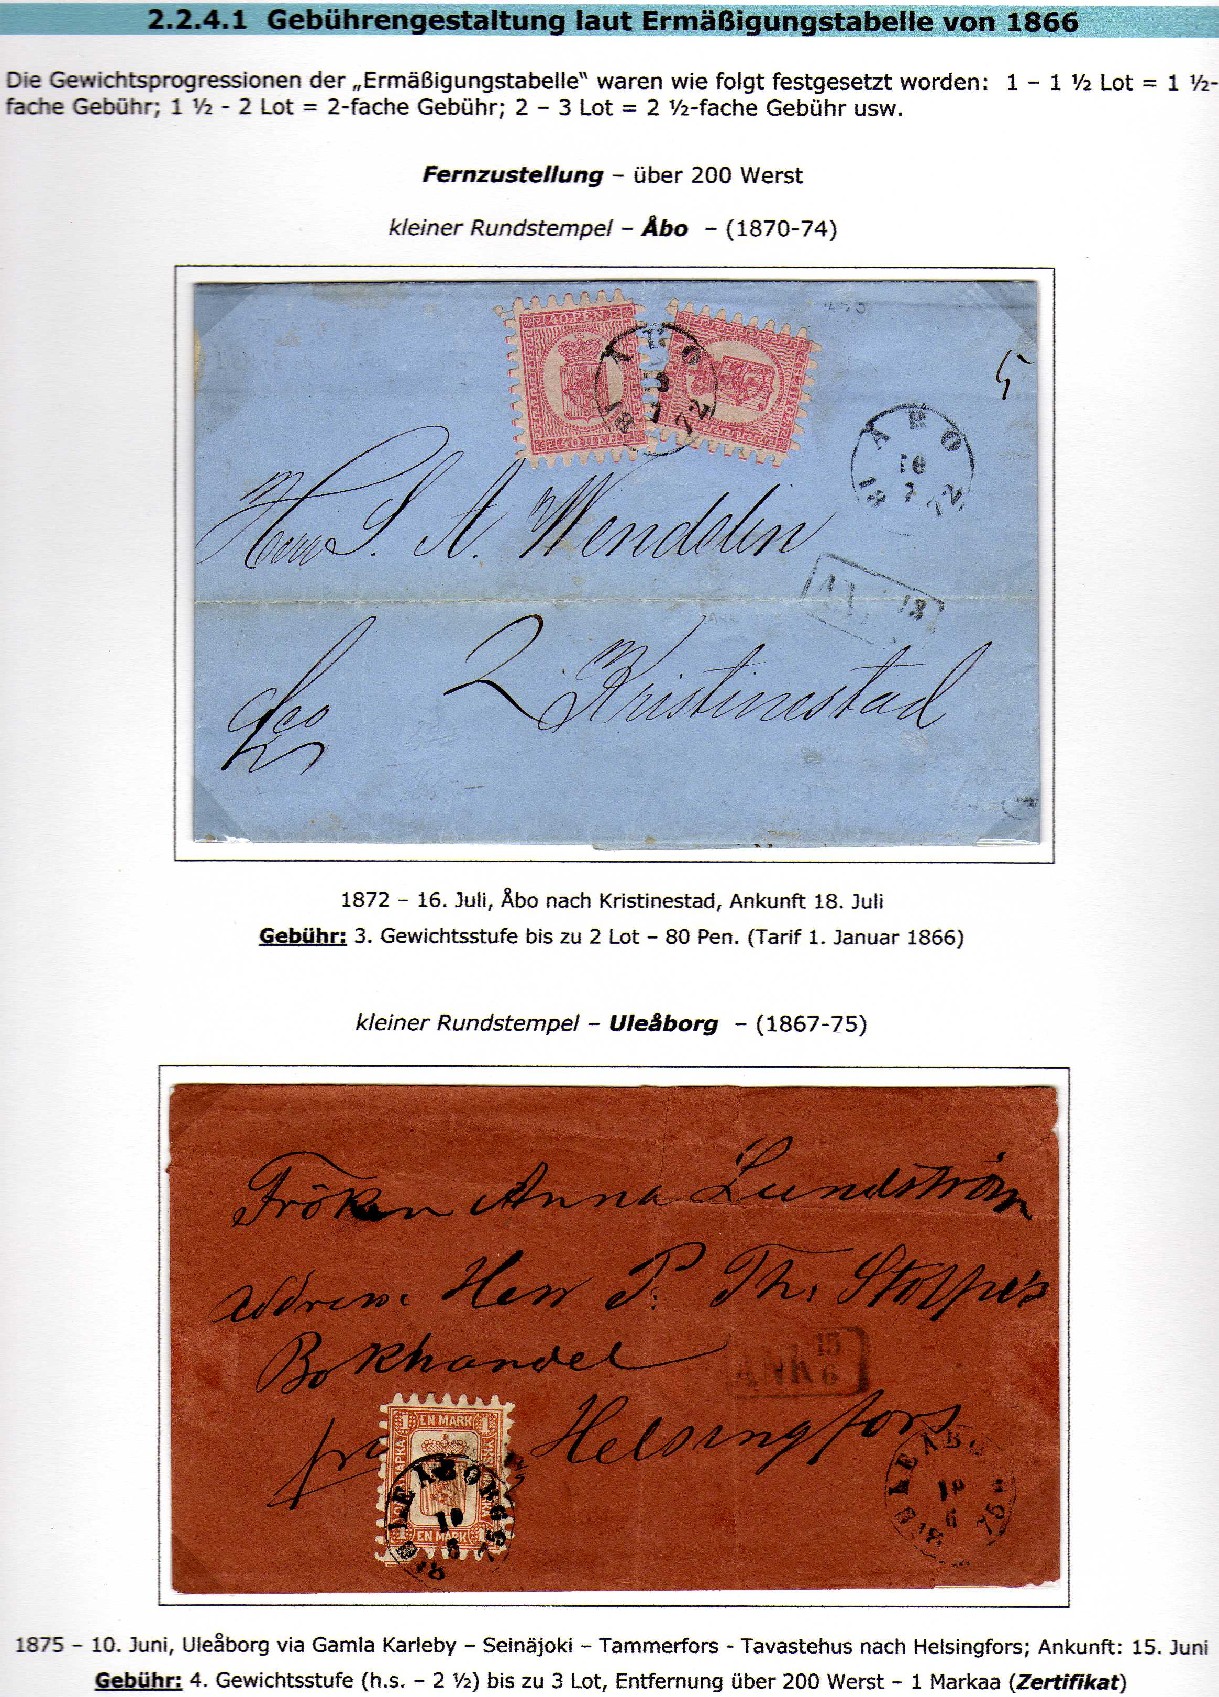 2.2.4.1 Gebührengestaltung laut Ermäßigungstabelle von 1866
Die Gewichtsprogressionen der „Ermäßigungstabelle" waren wie folgt festgesetzt worden: 1 – 1 ½ Lot = 1 ½-
fache Gebühr; 1 ½ - 2 Lot = 2-fache Gebühr; 2 – 3 Lot = 2 ½-fache Gebühr usw.
Fernzustellung – über 200 Werst
kleiner Rundstempel – Åbo – (1870-74)
ÅBO
18 72
5
ÅBO
16
7
18 72
Herr S. A. Wendelin
18
2 Kristinestad
1872 – 16. Juli, Åbo nach Kristinestad, Ankunft 18. Juli
Gebühr: 3. Gewichtsstufe bis zu 2 Lot – 80 Pen. (Tarif 1. Januar 1866)
kleiner Rundstempel – Uleåborg – (1867-75)
Fröken Anna Lundström
address. Herr P. Th. Stolpe's
Bokhandel
ANK 15
6
Helsingfors
1 EN MARK 1
ULEÅBORG
10
6
EN MARK
ULEÅBORG
10
6
75
1875 – 10. Juni, Uleåborg via Gamla Karleby – Seinäjoki – Tammerfors - Tavastehus nach Helsingfors; Ankunft: 15. Juni
Gebühr: 4. Gewichtsstufe (h.s. – 2 ½) bis zu 3 Lot, Entfernung über 200 Werst – 1 Markaa (Zertifikat)